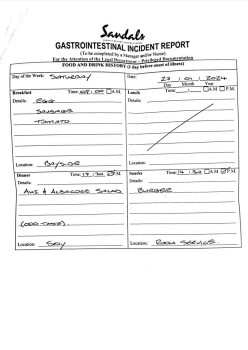 Sandals
GASTROINTESTINAL INCIDENT REPORT
(To be completed by a Manager and/or Nurse)
For the Attention of the Legal Department - Privileged Documentation
FOOD AND DRINK HISTORY (1 day before onset of illness)
Day of the Week: SATURDAY
Date: 27 / 01 / 2024
Day Month Year
Breakfast Time: 09:00 A.M
Details: EGG
SAUSAGE
TOMATO
Location: BAYSIDE
Lunch Time: A.M
P.M.
Details:
Location:
Dinner Time: 19:30 P.M.
Details:
& ALBACORE SALAD
(ODD TASTE)
Location: SOY
Snacks Time: 14:30 A.M P.M
Details:
BURGER
Location: ROOM SERVICE